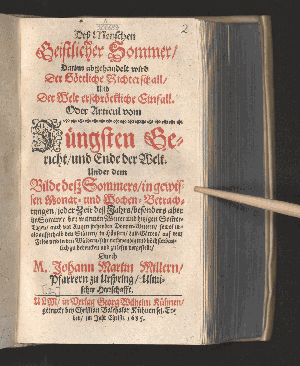 2
Deß Menschen
Geistlicher Sommer/
Darinn abgehandelt wird
Der Göttliche Richterschall/
Und
Der Welt erschröckliche Einfall.
Oder Articul vom
Jüngsten Ge-
richt/ und Ende der Welt.
Under dem
Bilde deß Sommers/ in gewis-
sen Monat- und Wochen- Betrach-
tungen, jeder Zeit deß Jahrs/ besonders aber
im Sommer bey warmen Wetter und hitzigen
Durch
M. Johann Martin Millern/
Pfarrern zu Urspring/ Ulmi-
scher Herrschafft.
ULM/ in Verlag Georg Wilhelm Kühnen/
gedruckt bey Christian Balthasar Kühnen sel.
im Jahr Christi 1685.